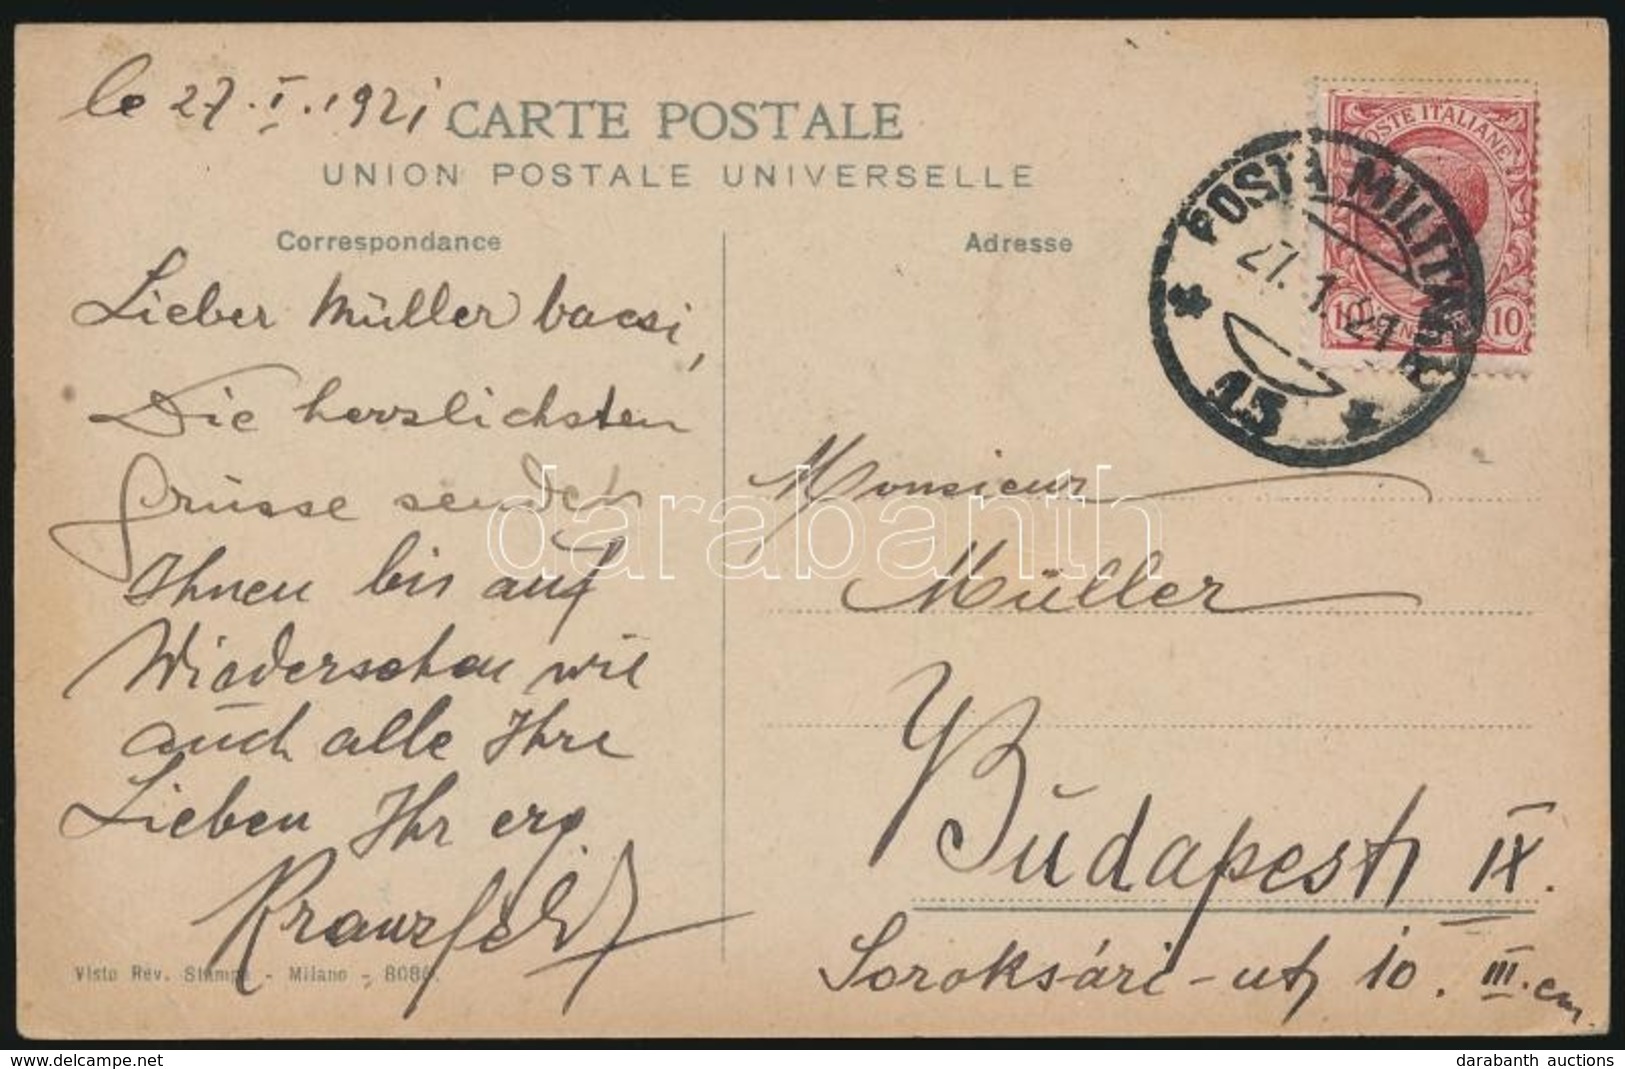 le 27.I.1921
CARTE POSTALE
UNION POSTALE UNIVERSELLE
Correspondance
Lieber Müller bacsi,
Die herzlichsten
Grüsse senden
Ihnen bis auf
Wiedersehen wie
auch alle Ihre
Lieben Ihr erg.
Visto Rev. Stampa - Milano -
Adresse
POSTE ITALIANE
10 10
POSTA MILITARE
27.1.21
15
Monsieur
Müller
Budapest IX.
Soroksári-ut 10. III. em.
darabanth
www.darabanth.com
darabanth auctions